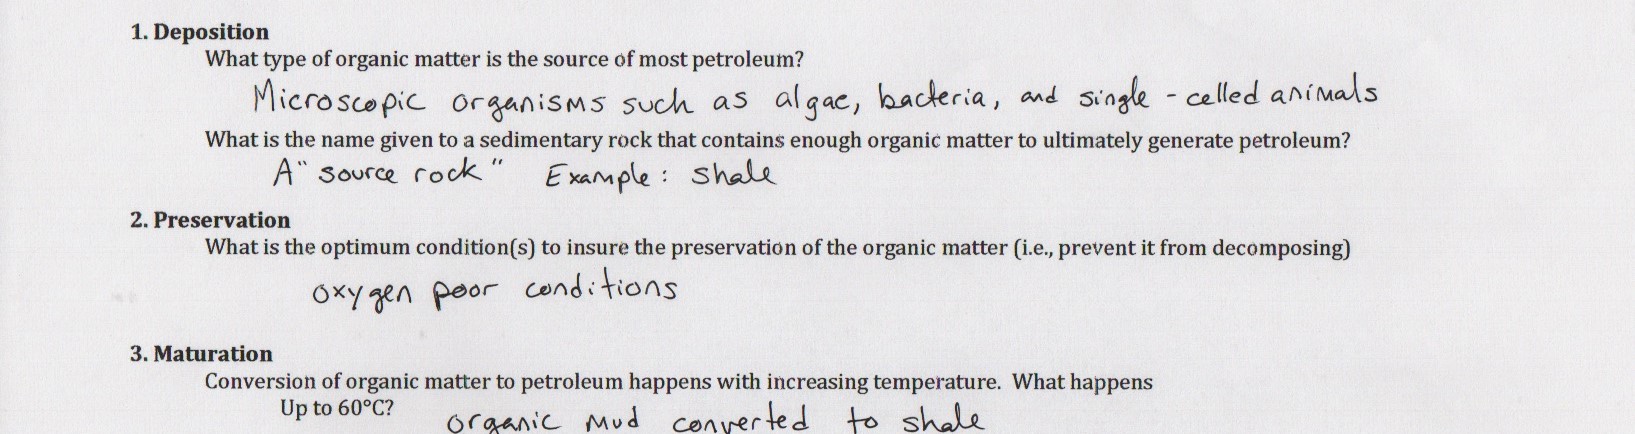 1. Deposition
What type of organic matter is the source of most petroleum?
Microscopic organisms such as algae, bacteria, and single-celled animals
What is the name given to a sedimentary rock that contains enough organic matter to ultimately generate petroleum?
A "source rock" Example: shale
2. Preservation
What is the optimum condition(s) to insure the preservation of the organic matter (i.e., prevent it from decomposing)
oxygen poor conditions
3. Maturation
Conversion of organic matter to petroleum happens with increasing temperature. What happens
Up to 60°C? organic mud converted to shale